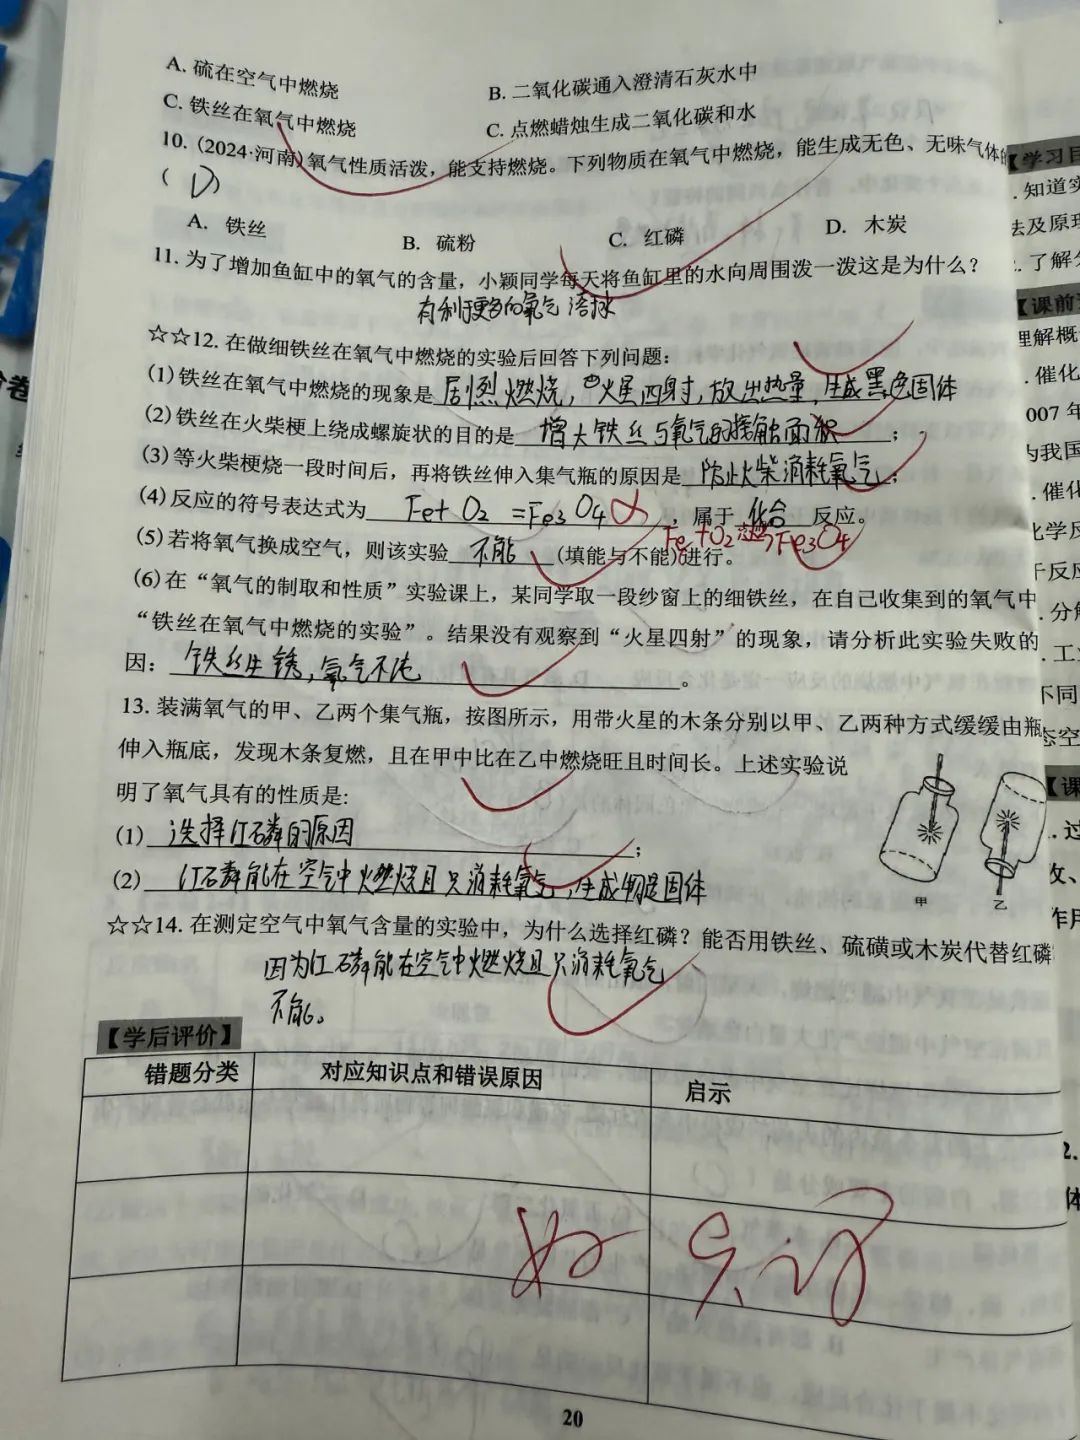 A. 硫在空气中燃烧 B. 二氧化碳通入澄清石灰水中
C. 铁丝在氧气中燃烧 C. 点燃蜡烛生成二氧化碳和水
10. (2024·河南)氧气性质活泼，能支持燃烧。下列物质在氧气中燃烧，能生成无色、无味气体的
( D )
A. 铁丝 B. 硫粉 C. 红磷 D. 木炭
11. 为了增加鱼缸中的氧气的含量，小颖同学每天将鱼缸里的水向周围泼一泼这是为什么？
有利于更多的氧气溶于水
☆☆12. 在做细铁丝在氧气中燃烧的实验后回答下列问题：
(1)铁丝在氧气中燃烧的现象是 剧烈燃烧，火星四射，放出热量，生成黑色固体
(2)铁丝在火柴梗上绕成螺旋状的目的是 增大铁丝与氧气的接触面积 ；
(3)等火柴梗烧一段时间后，再将铁丝伸入集气瓶的原因是 防止火柴消耗氧气 ；
(4)反应的符号表达式为 Fe+O2=Fe3O4 ，属于 化合 反应。
Fe+O2 点燃→Fe3O4
(5)若将氧气换成空气，则该实验 不能 (填能与不能)进行。
(6)在“氧气的制取和性质”实验课上，某同学取一段纱窗上的细铁丝，在自己收集到的氧气中
“铁丝在氧气中燃烧的实验”。结果没有观察到“火星四射”的现象，请分析此实验失败的
因： 铁丝生锈，氧气不纯 。
13. 装满氧气的甲、乙两个集气瓶，按图所示，用带火星的木条分别以甲、乙两种方式缓缓由瓶
伸入瓶底，发现木条复燃，且在甲中比在乙中燃烧旺且时间长。上述实验说
明了氧气具有的性质是:
(1) 选择红磷的原因 ；
(2) 红磷能在空气中燃烧且只消耗氧气，生成物是固体
甲 乙
☆☆14. 在测定空气中氧气含量的实验中，为什么选择红磷？能否用铁丝、硫磺或木炭代替红磷
因为红磷能在空气中燃烧且只消耗氧气
不能。
【学后评价】
错题分类 对应知识点和错误原因 启示
20
【学习目
. 知道实
法及原理
. 了解分
【课前
理解概
. 催化
007 年
为我国
. 催化
化学反
于反应
. 分解
. 工
不同
态空
【课
. 过
攵、
作用
2.
体